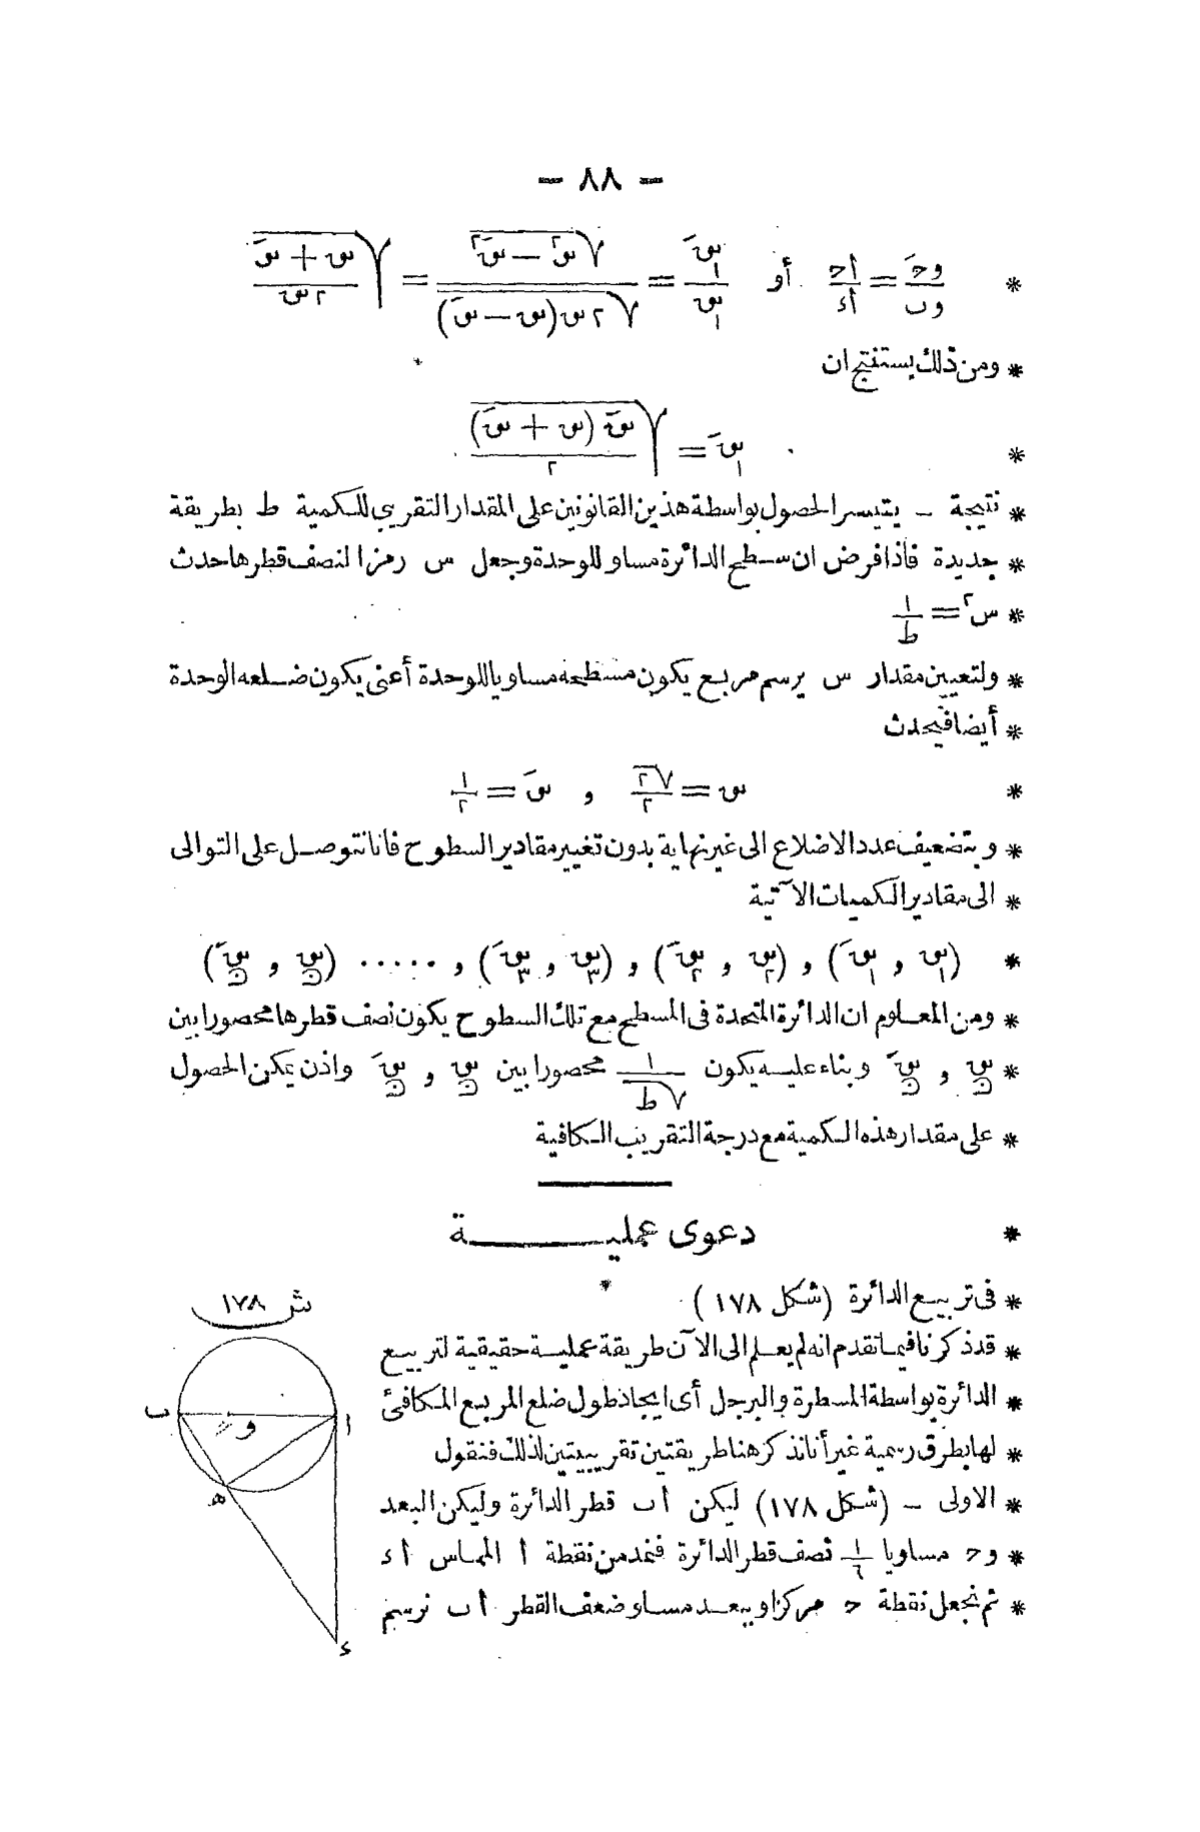 — ٨٨ —
* وحَ/وب = أح/أء أو سَ١/س١ = √(س٢ — سَ٢)/√(٢س(س — سَ)) = √((س + سَ)/٢س)
* ومن ذلك يستنتج ان
* سَ١ = √(سَ (س + سَ)/٢)
* نتيجة — يتيسر الحصول بواسطة هذين القانونين على المقدار التقريبي للكمية ط بطريقة
* جديدة فاذا فرض ان سطح الدائرة مساو للوحدة وجعل س رمزا لنصف قطرها حدث
* س٢ = ١/ط
* ولتعيين مقدار س يرسم مربع يكون مسطحه مساويا للوحدة أعنى يكون ضلعه الوحدة
* أيضا فيحدث
* س = √٢/٢ و سَ = ١/٢
* وبتضعيف عدد الاضلاع الى غير نهاية بدون تغيير مقادير السطوح فاننا نتوصل على التوالى
* الى مقادير الكميات الآتية
* (س١ و سَ١) و (س٢ و سَ٢) و (س٣ و سَ٣) و ..... (سن و سَن)
* ومن المعلوم ان الدائرة المتحدة فى المسطح مع تلك السطوح يكون نصف قطرها محصورا بين
* سن و سَن وبناء عليه يكون ١/√ط محصورا بين سن و سَن واذن يمكن الحصول
* على مقدار هذه الكمية مع درجة التقريب الكافية
* دعوى عملية
* فى تربيع الدائرة (شكل ١٧٨)
* قد ذكرنا فيما تقدم انه لم يعلم الى الآن طريقة عملية حقيقية لتربيع
* الدائرة بواسطة المسطرة والبرجل أى ايجاد طول ضلع المربع المكافئ
* لها بطرق رسمية غير أنا نذكر هنا طريقتين تقريبيتين لذلك فنقول
* الاولى — (شكل ١٧٨) ليكن أ ب قطر الدائرة وليكن البعد
* و ح مساويا ١/٦ نصف قطر الدائرة فنمد من نقطة أ المماس أ ء
* ثم نجعل نقطة ح مركزا وببعد مساو ضعف القطر أ ب نرسم
ش ١٧٨
ب
و
ا
ه
ء